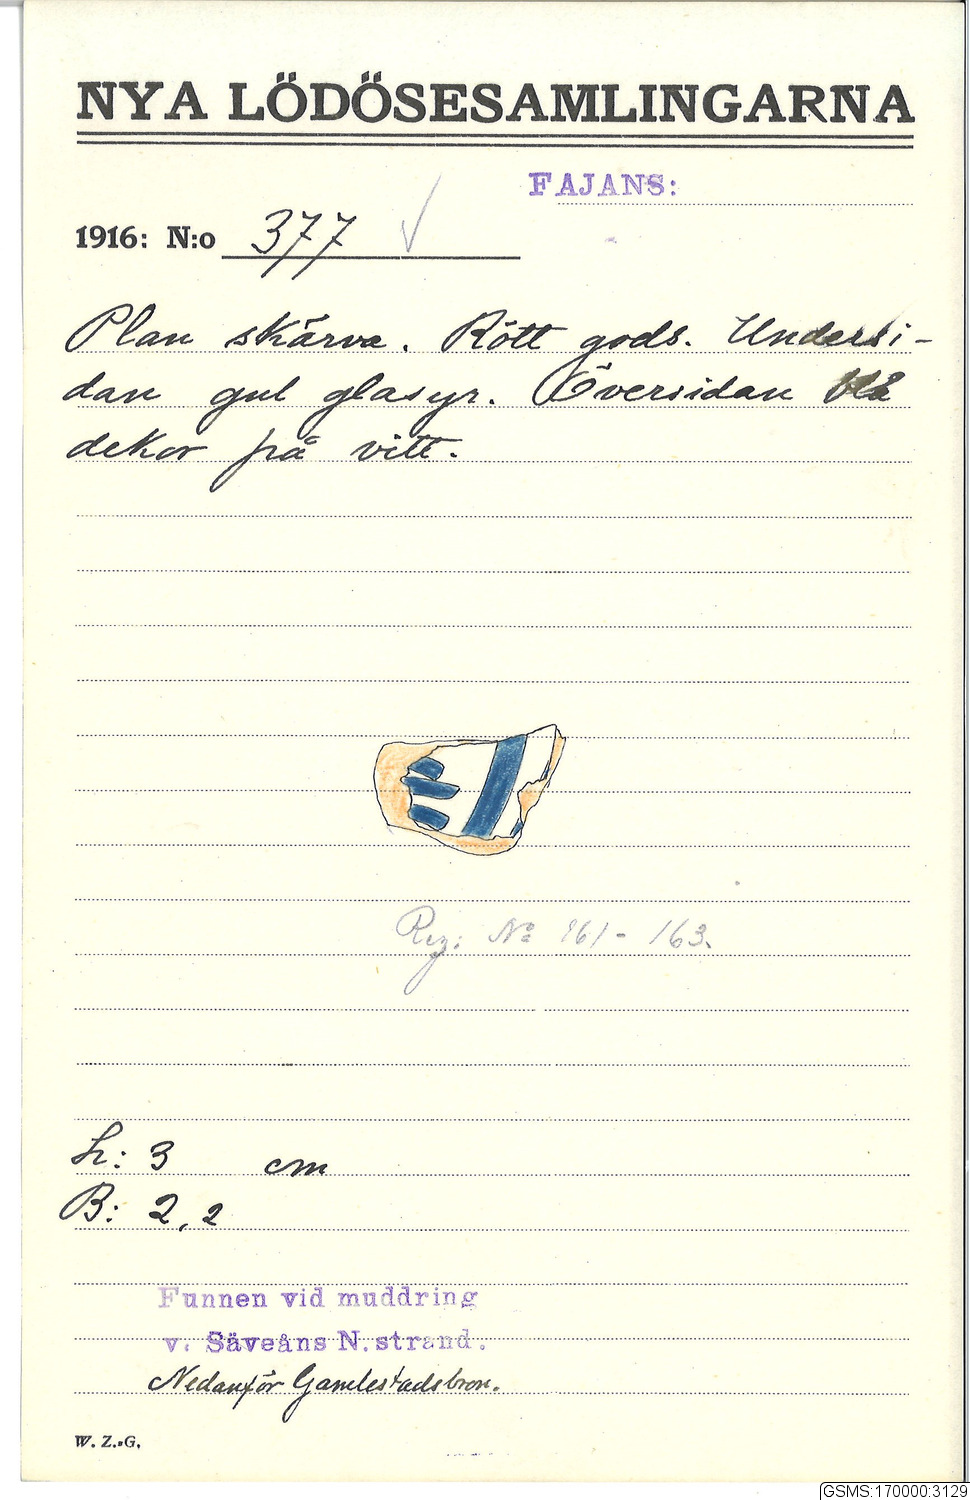 NYA LÖDÖSESAMLINGARNA
FAJANS:
1916: N:o 377 ✓
Plan skärva. Rött gods. Undersi-
dan gul glasyr. Översidan blå
dekor på vitt.
Reg: No 161-163.
L: 3 cm
B: 2,2
Funnen vid muddring
v. Säveåns N. strand.
Nedanför Gamlestadsbron.
W. Z.-G.
GSMS:170000:3129